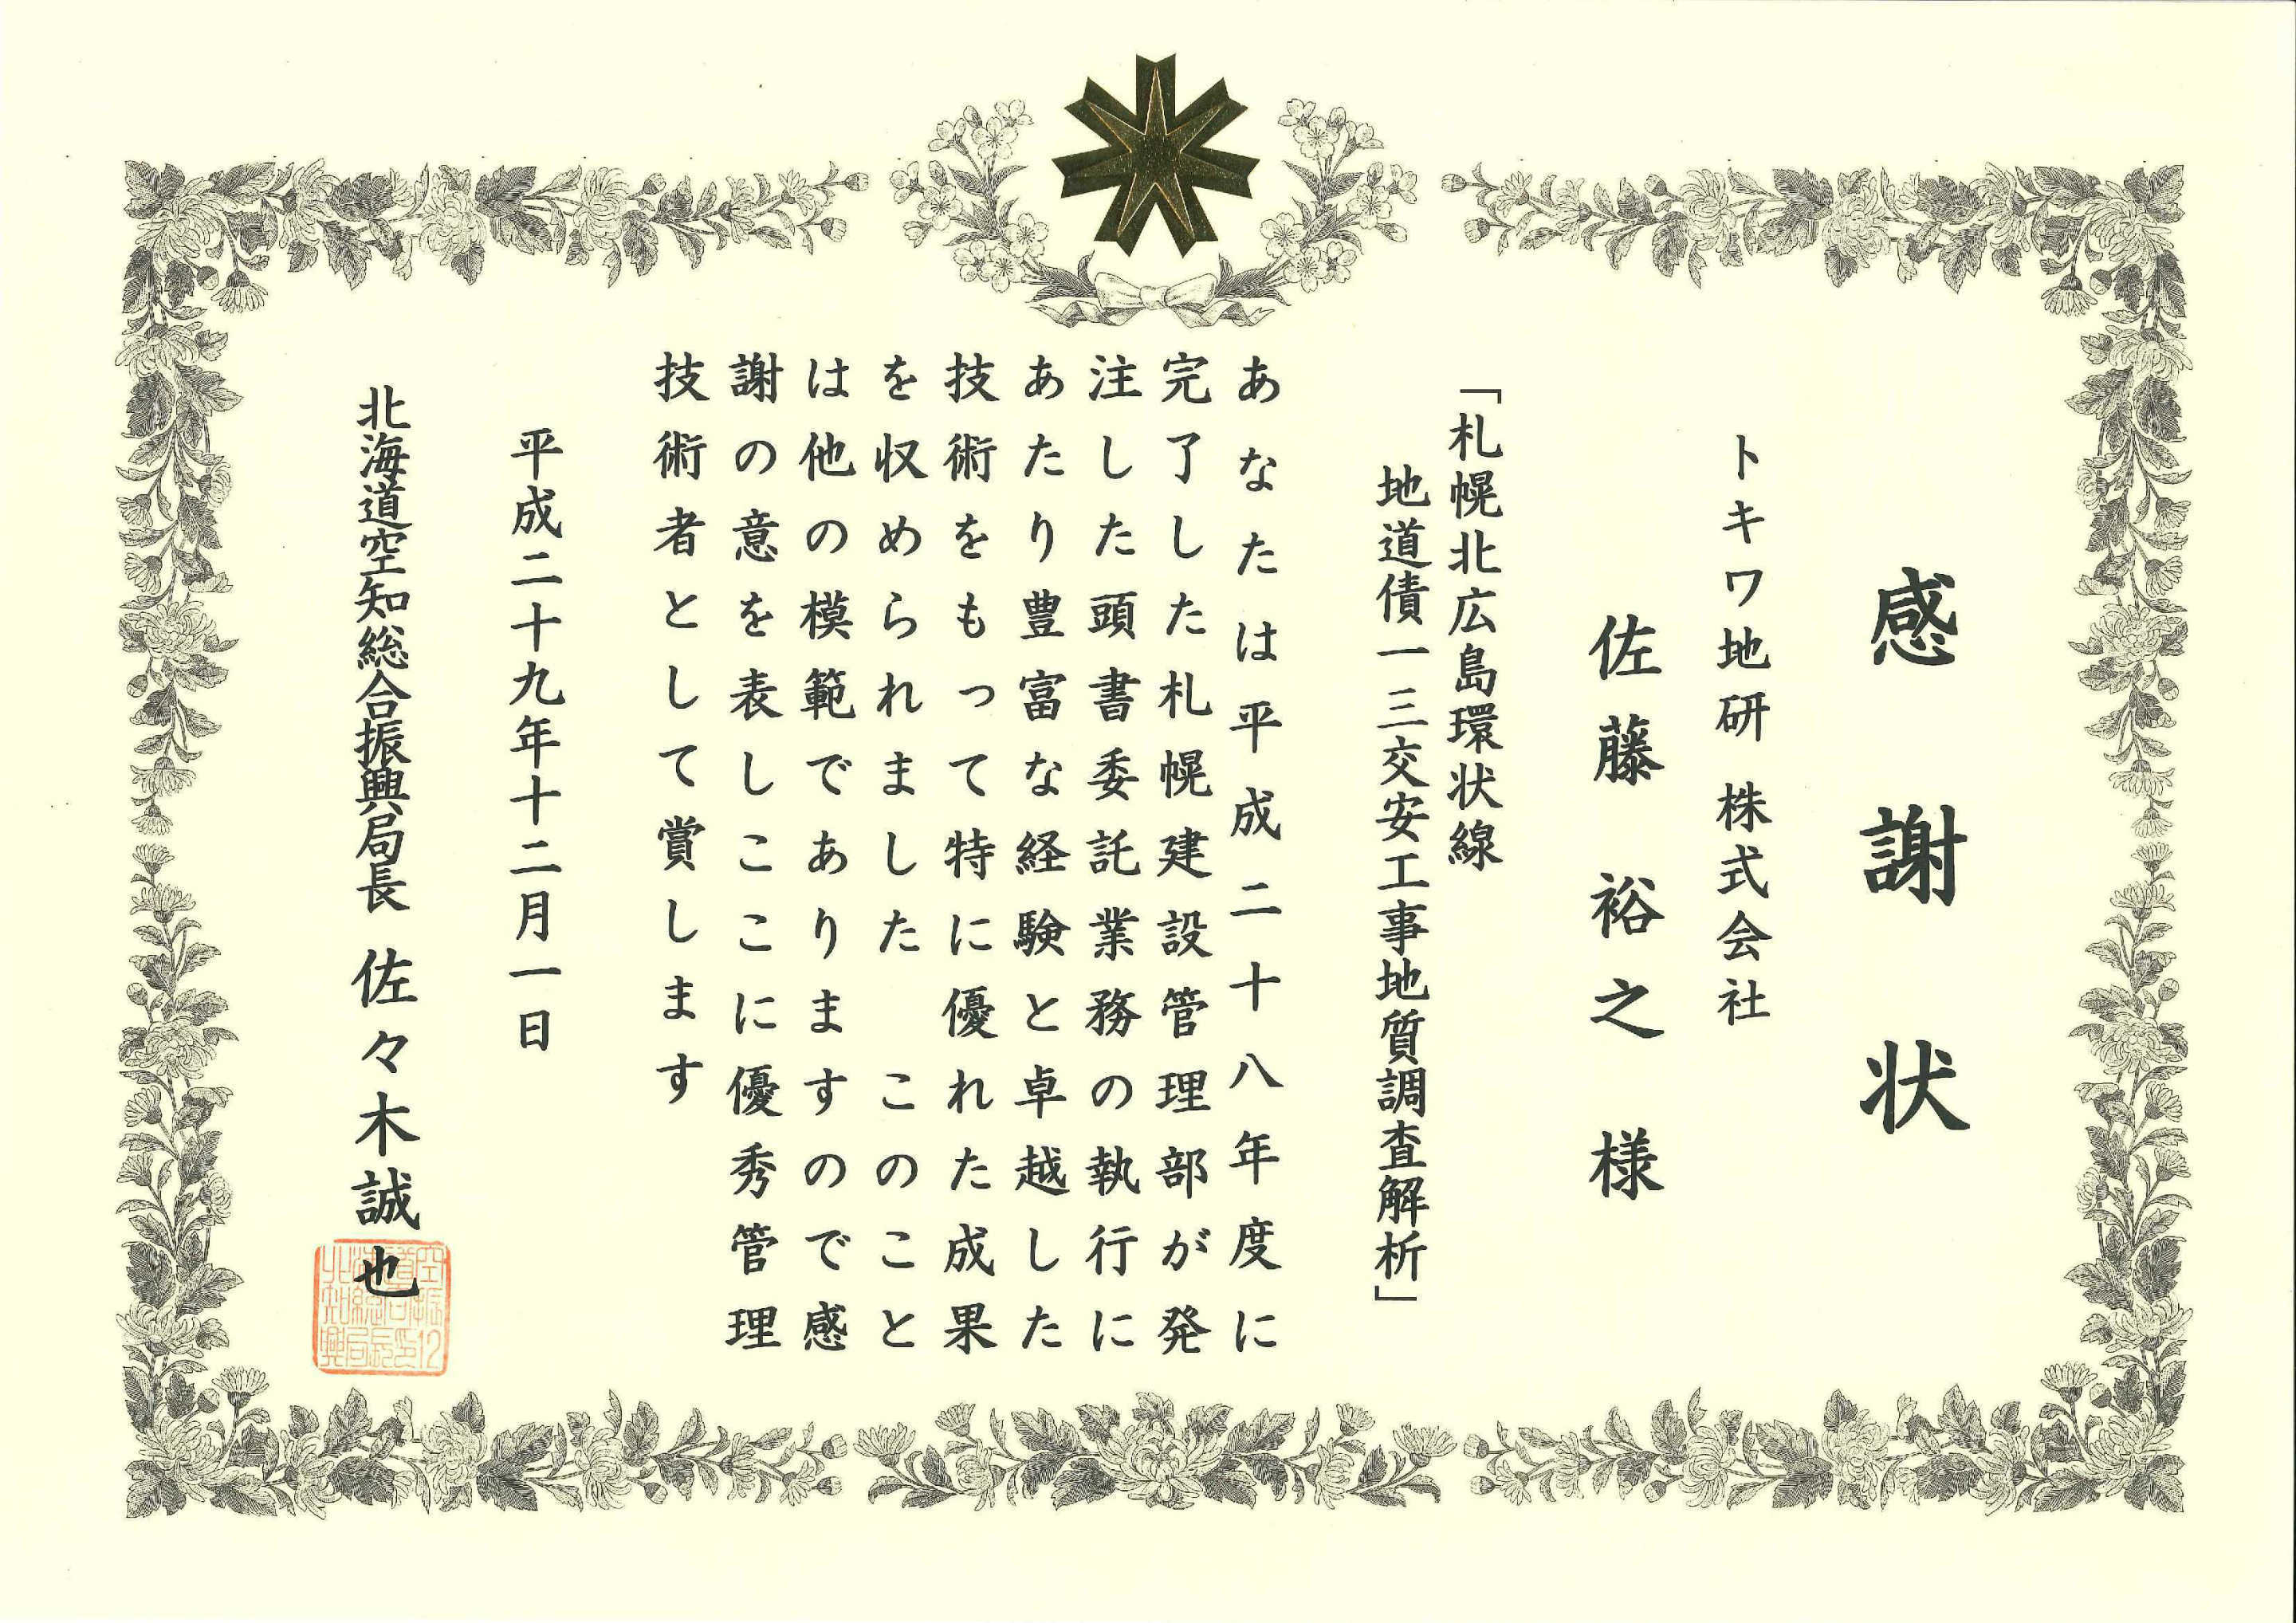 感謝状
トキワ地研 株式会社
佐藤 裕之 様
「札幌北広島環状線
地道債一三交安工事地質調査解析」
あなたは平成二十八年度に
完了した札幌建設管理部が発
注した頭書委託業務の執行に
あたり豊富な経験と卓越した
技術をもって特に優れた成果
を収められました このこと
は他の模範でありますので感
謝の意を表しここに優秀管理
技術者として賞します
平成二十九年十二月一日
北海道空知総合振興局長 佐々木誠也